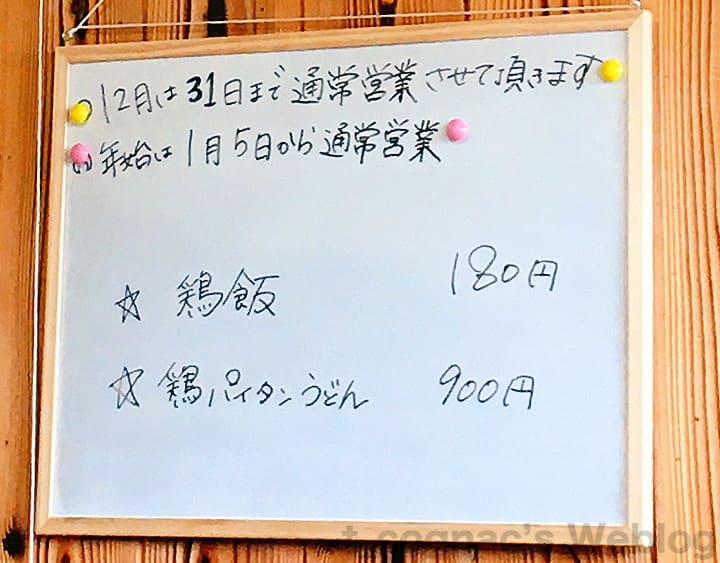 12月は31日まで通常営業させて頂きます
年始は1月5日から通常営業
☆ 鶏飯 180円
☆ 鶏パイタンうどん 900円
t.cognac's Weblog